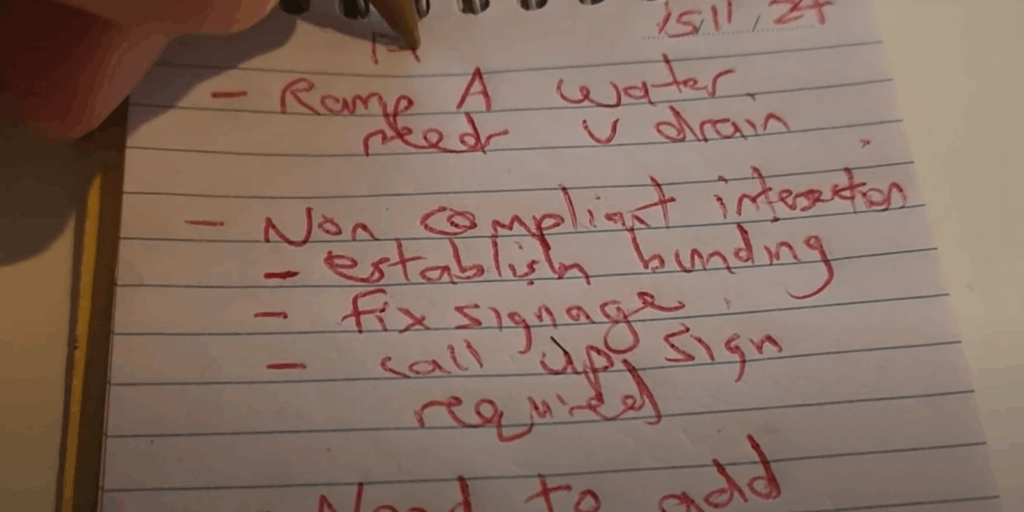 15.11.24
- Ramp A water
need v drain
- Non compliant intersection
- establish bunding
- fix signage
- call up sign
required
Need to add